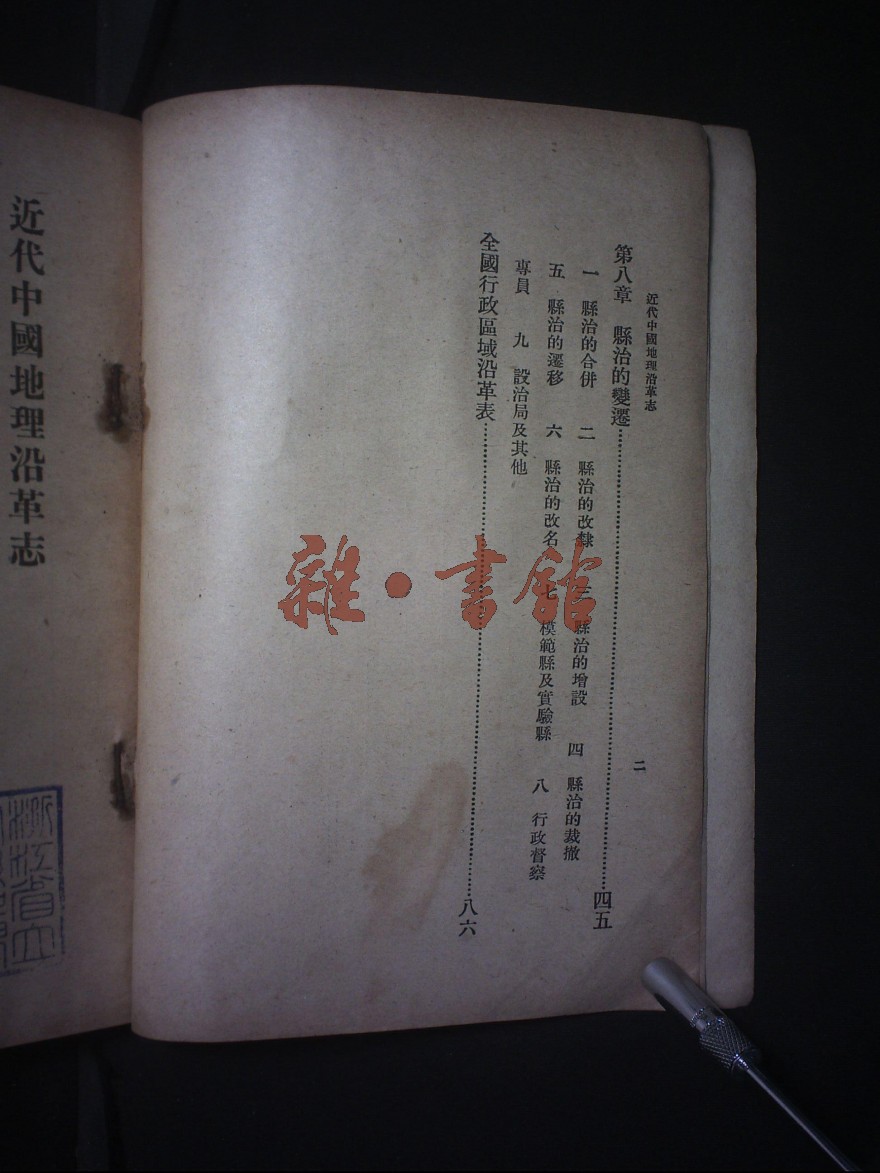 近代中國地理沿革志
二
第八章　縣治的變遷……四五
一　縣治的合併　二　縣治的改隸　三　縣治的增設　四　縣治的裁撤
五　縣治的遷移　六　縣治的改名　七　模範縣及實驗縣　八　行政督察
專員　九　設治局及其他
全國行政區域沿革表……八六
雜·書館
近代中國地理沿革志
浙江省立